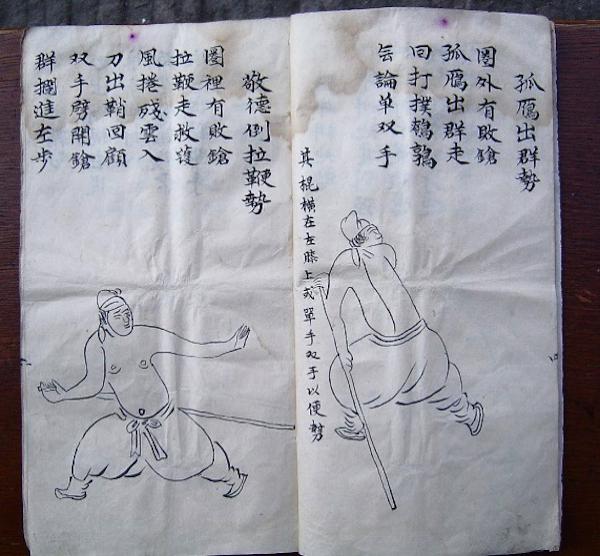 孤鴈出群勢
圈外有敗鎗
孤鴈出群走
回打撲鵪鶉
論单双手
其棍橫在左膝上或單手双手以使势
敬德倒拉鞭勢
圈裡有敗鎗
拉鞭走救護
風捲残雲入
刀出鞘回顧
双手劈開鎗
群攔進左步